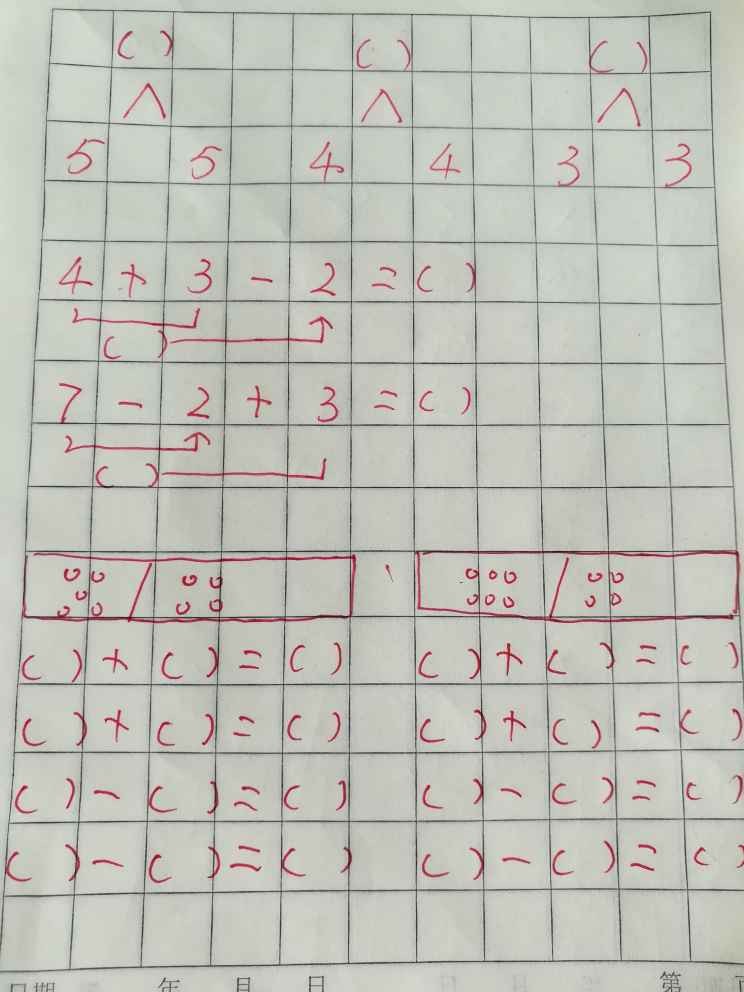 ( ) ( ) ( )
∧ ∧ ∧
5 5 4 4 3 3
4 + 3 - 2 = ( )
( )
7 - 2 + 3 = ( )
( )
( ) + ( ) = ( ) ( ) + ( ) = ( )
( ) + ( ) = ( ) ( ) + ( ) = ( )
( ) - ( ) = ( ) ( ) - ( ) = ( )
( ) - ( ) = ( ) ( ) - ( ) = ( )
日期 年 月 日 第